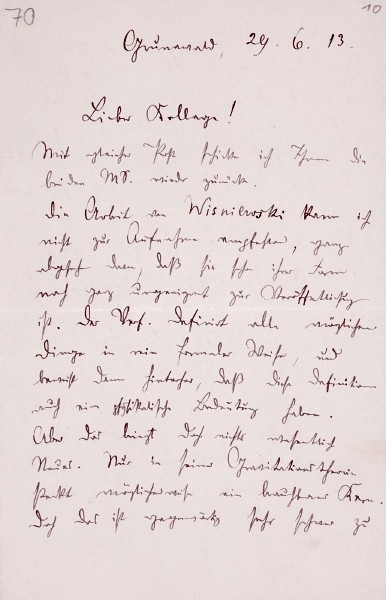 70
10
Grunewald, 29. 6. 13.
Lieber Kollege!
Mit gleicher Post schicke ich Ihnen die
beiden MS. wieder zurück.
Die Arbeit von Wisniewski kann ich
nicht zur Aufnahme empfehlen, ganz
abgesehen davon, daß sie schon ihrer Form
nach ganz ungeeignet zur Veröffentlichung
ist. Der Verf. definirt alle möglichen
Dinge in rein formaler Weise, und
beweist dann hinterher, daß diese Definitionen
auch eine physikalische Bedeutung haben.
Aber das bringt doch nichts wesentlich
Neues. Nur in seiner Gravitationstheorie
steckt möglicherweise ein brauchbarer Kern.
Doch das ist gegenwärtig sehr schwer zu